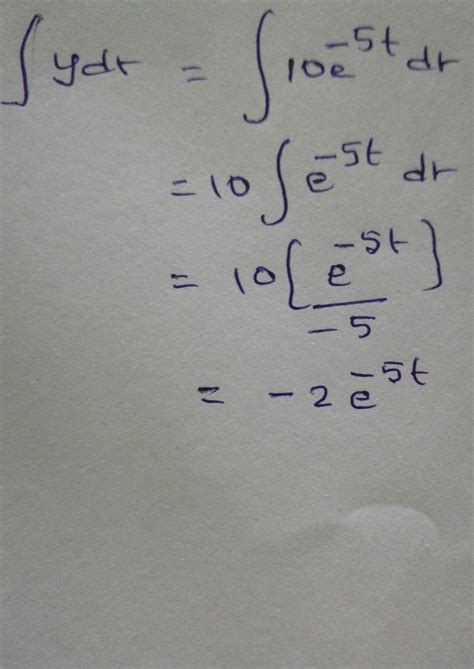 ∫ydt = ∫10e^{-5t} dt
= 10∫e^{-5t} dt
= 10[e^{-5t}/-5]
= -2e^{-5t}